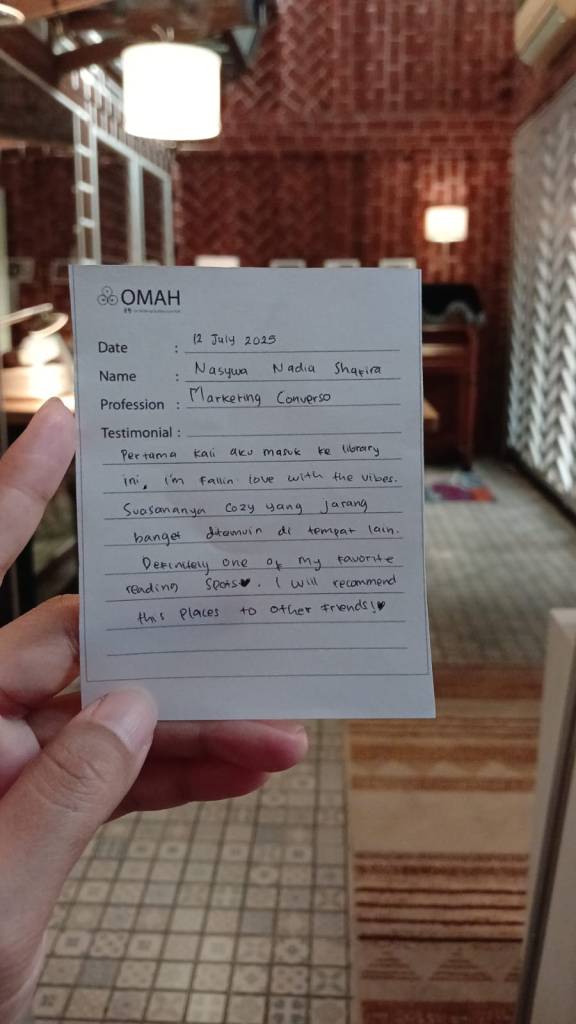 OMAH
Date : 12 July 2025
Name : Nasywa Nadia Shafira
Profession : Marketing Converso
Testimonial :
Pertama kali aku masuk ke library
ini, i'm fallin love with the vibes.
Suasananya cozy yang jarang
banget ditemuin di tempat lain.
Definitely one of my favorite
reading spots♥. I will recommend
this places to other friends!♥